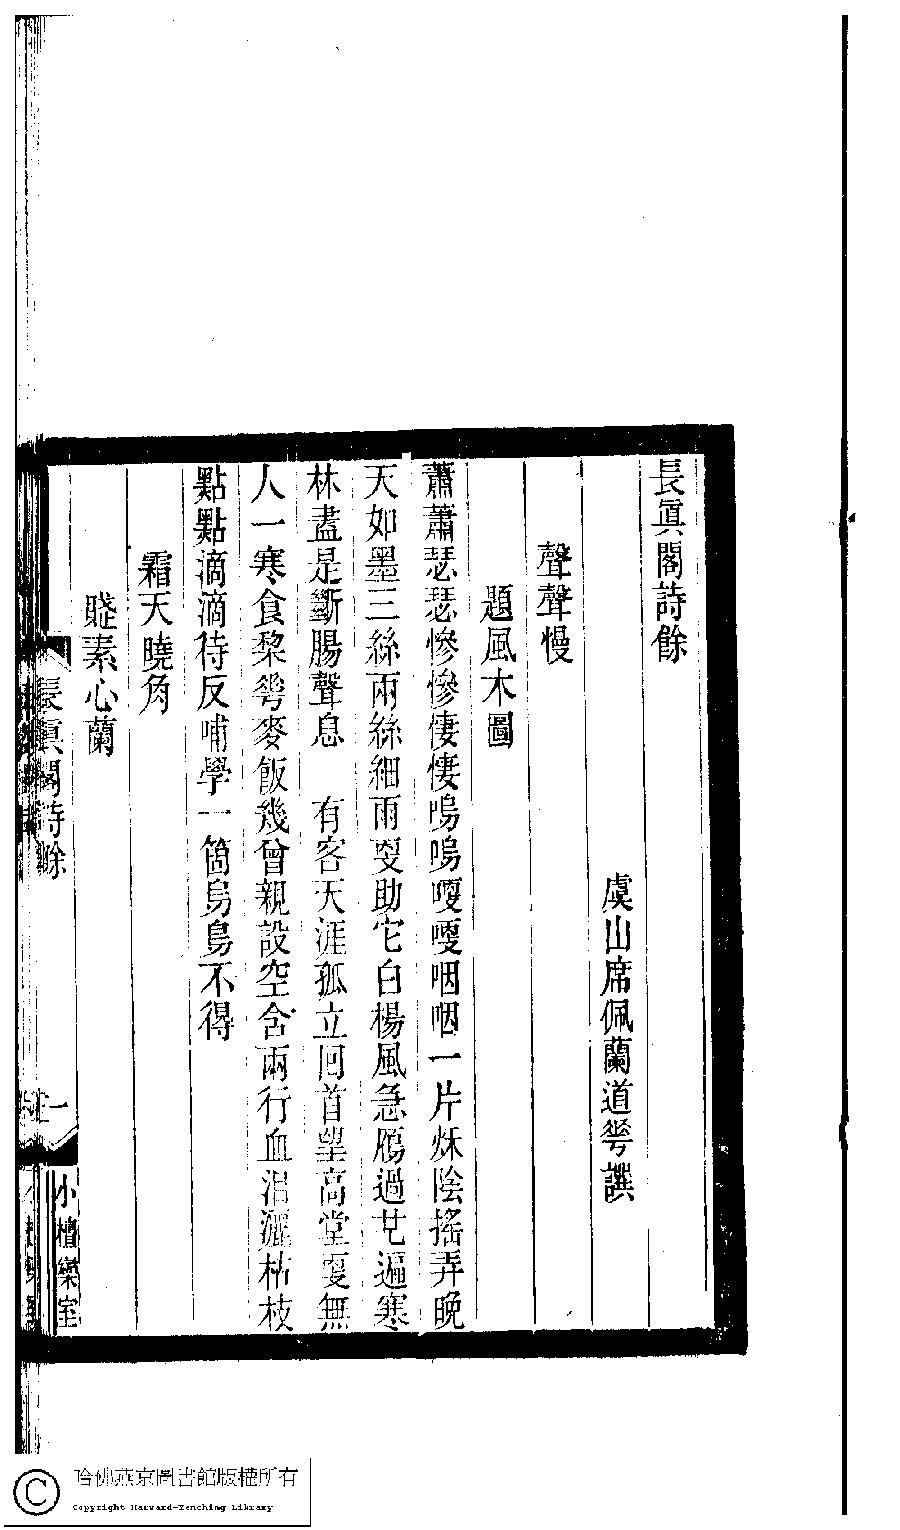 長眞閣詩餘
虞山席佩蘭道華譔
聲聲慢
題風木圖
蕭蕭瑟瑟慘慘悽悽嗚嗚嘎嘎咽咽一片秌陰搖弄晚
天如墨三絲兩絲細雨叓助它白楊風急鴈過也遍寒
林盡是斷腸聲息　有客天涯孤立回首望高堂叓無
人一寒食棃雩麥飯幾曾親設空含兩行血淚灑枯枝
點點滴滴待反哺學一箇舄鳥不得
霜天曉角
賤素心蘭
長眞閣詩餘
一
小檀欒室
哈佛燕京圖書館版權所有
Copyright Harvard-Yenching Library